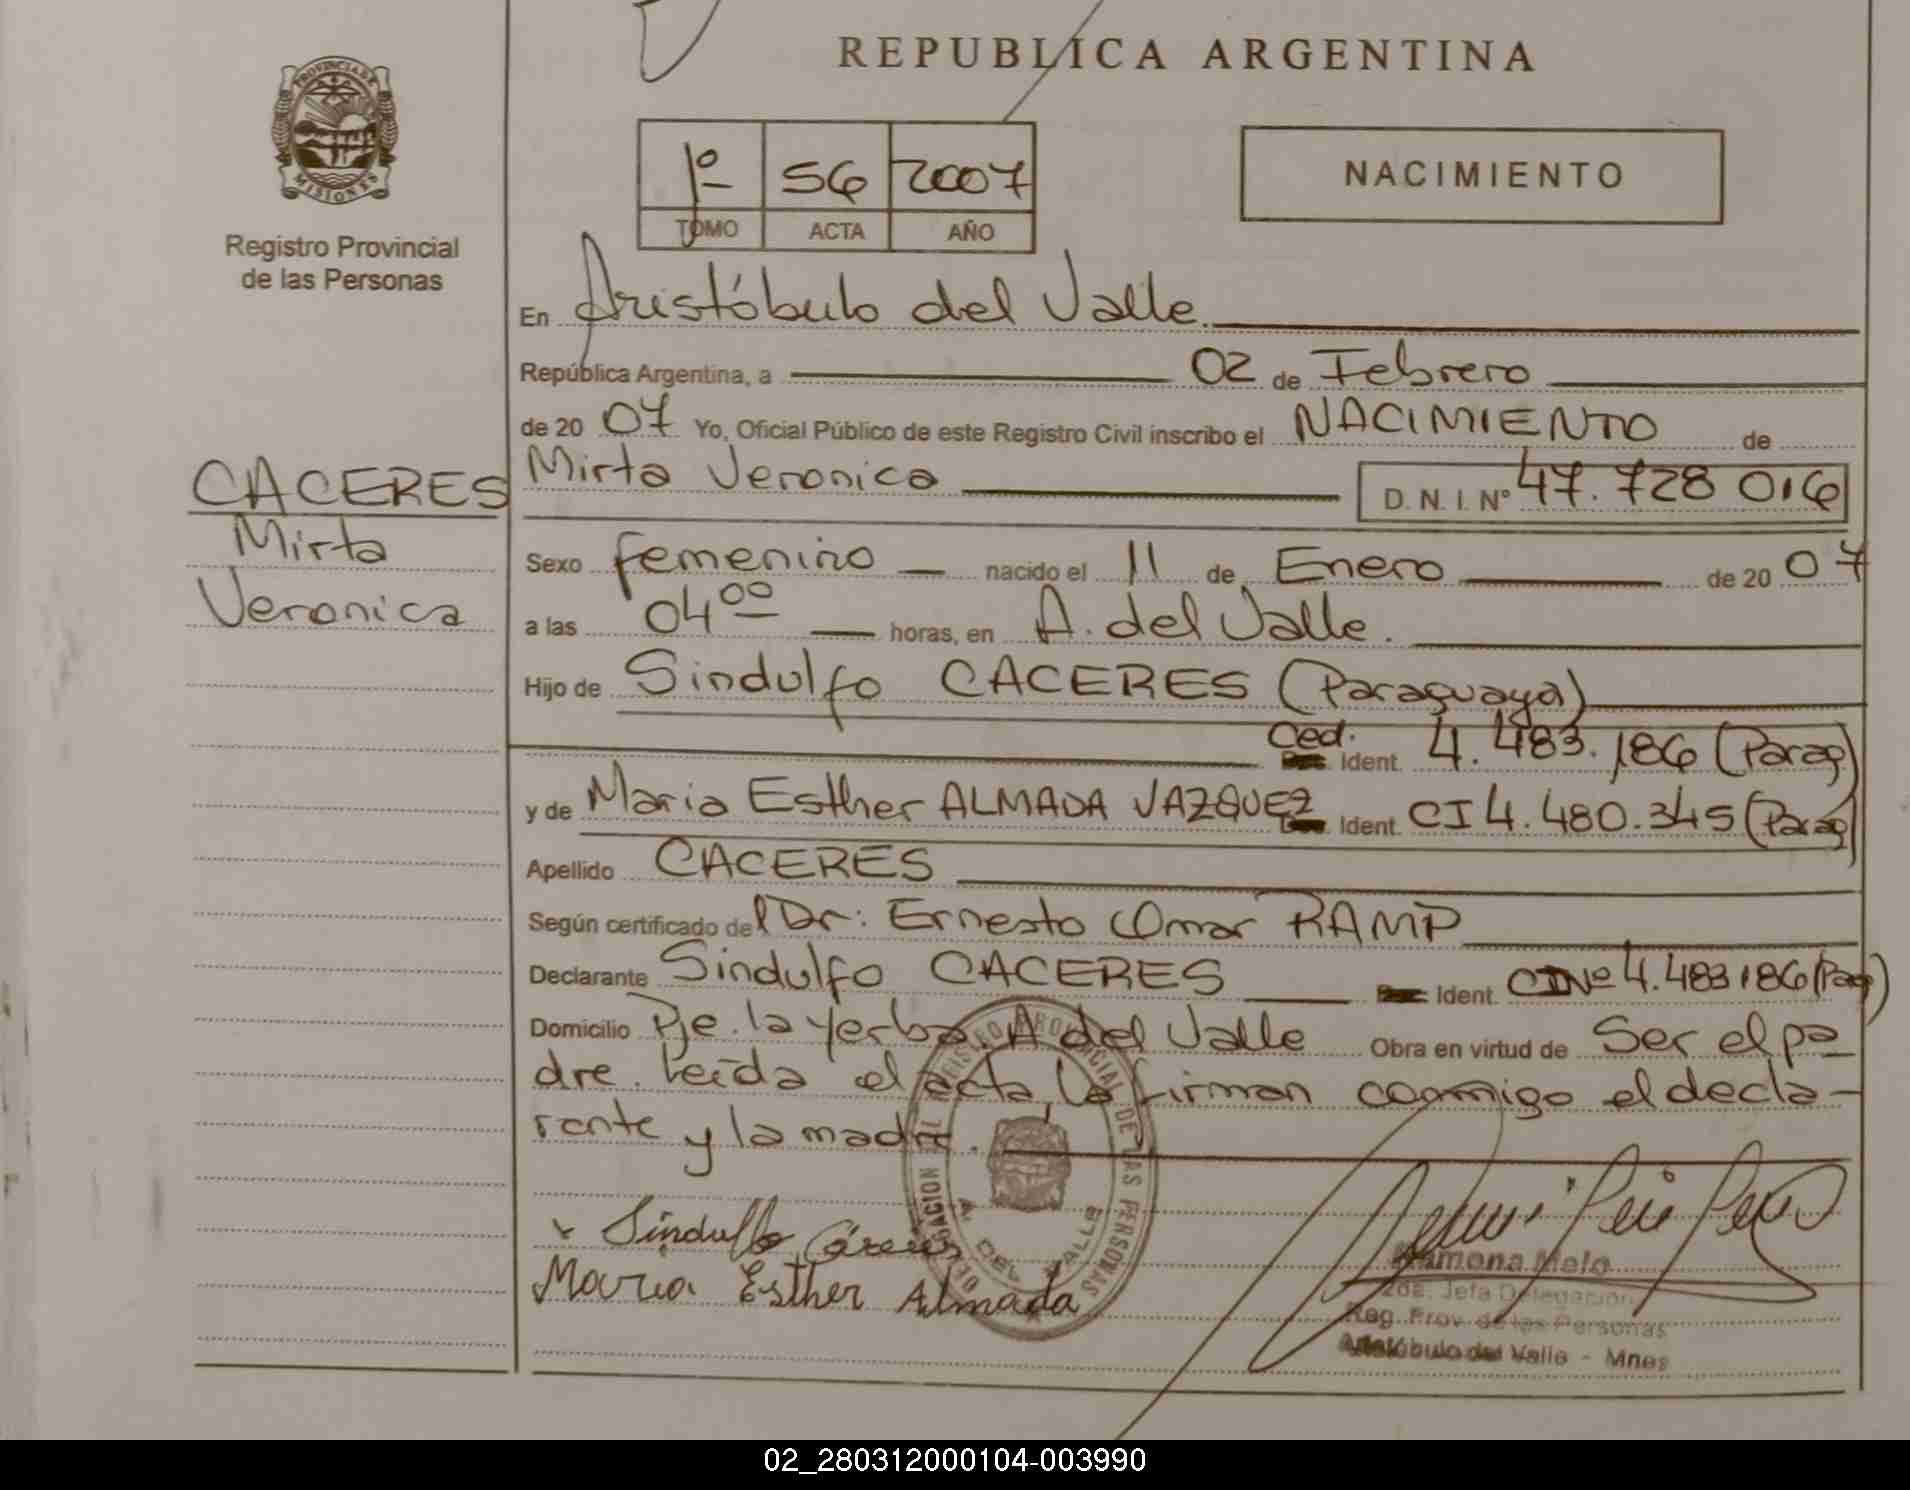 REPUBLICA ARGENTINA
PROVINCIA DE
MISIONES
Registro Provincial
de las Personas
1º 56 2007
TOMO ACTA AÑO
NACIMIENTO
En Aristóbulo del Valle.
República Argentina, a 02 de Febrero
de 20 07 Yo, Oficial Público de este Registro Civil inscribo el NACIMIENTO de
CACERES
Mirta
Veronica
Mirta Veronica D. N. I. Nº 47.728 016
Sexo femenino nacido el 11 de Enero de 20 07
a las 04 00 horas, en A. del Valle.
Hijo de Sindulfo CACERES (Paraguaya)
Ced. Ident. 4.483.186 (Parag)
y de Maria Esther ALMADA VAZQUEZ Ident. CI 4.480.345 (Parag)
Apellido CACERES
Según certificado del Dr: Ernesto Omar RAMP
Declarante Sindulfo CACERES Ident. CI Nº 4.483186 (Pag)
Domicilio Pje. la yerba A del Valle Obra en virtud de Ser el pa_
dre. Leída el acta, la firman conmigo el decla-
rante y la madre.
Sindulfo Cáceres
Maria Esther Almada
REGISTRO PROVINCIAL DE LAS PERSONAS
A. DEL VALLE
Ramona Melo
2da. Jefa Delegación
Reg. Prov. de las Personas
Aristóbulo del Valle - Mnes
02_280312000104-003990